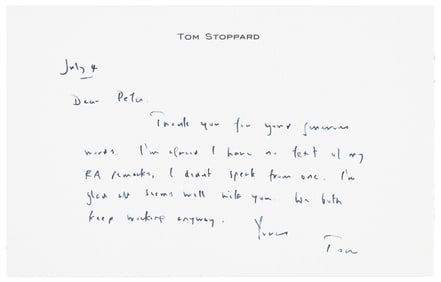 TOM STOPPARD
July 4
Dear Peter.
Thank you for your generous
words. I'm afraid I have no text of my
RA remarks, I didnt speak from one. I'm
glad all seems well with you. We both
keep working anyway.
Yours
Tom